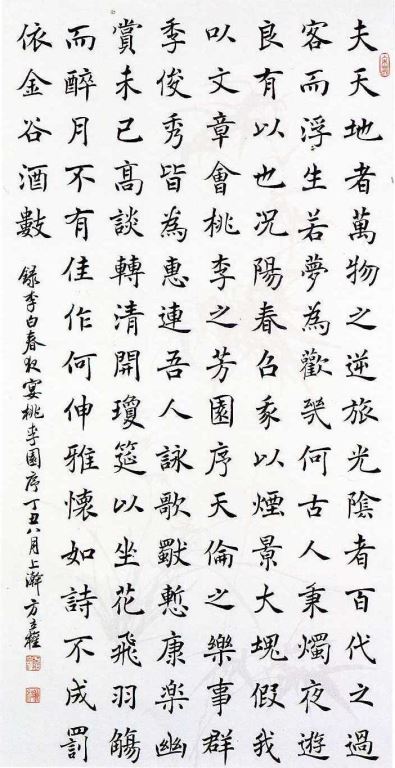 夫天地者萬物之逆旅光陰者百代之過
客而浮生若夢為歡幾何古人秉燭夜遊
良有以也况陽春召我以煙景大塊假我
以文章會桃李之芳園序天倫之樂事群
季俊秀皆為惠連吾人詠歌獨慙康楽幽
賞未已高談轉清開瓊筵以坐花飛羽觴
而醉月不有佳作何伸雅懷如詩不成罰
依金谷酒數
錄李白春夜宴桃李園序丁丑八月上澣方